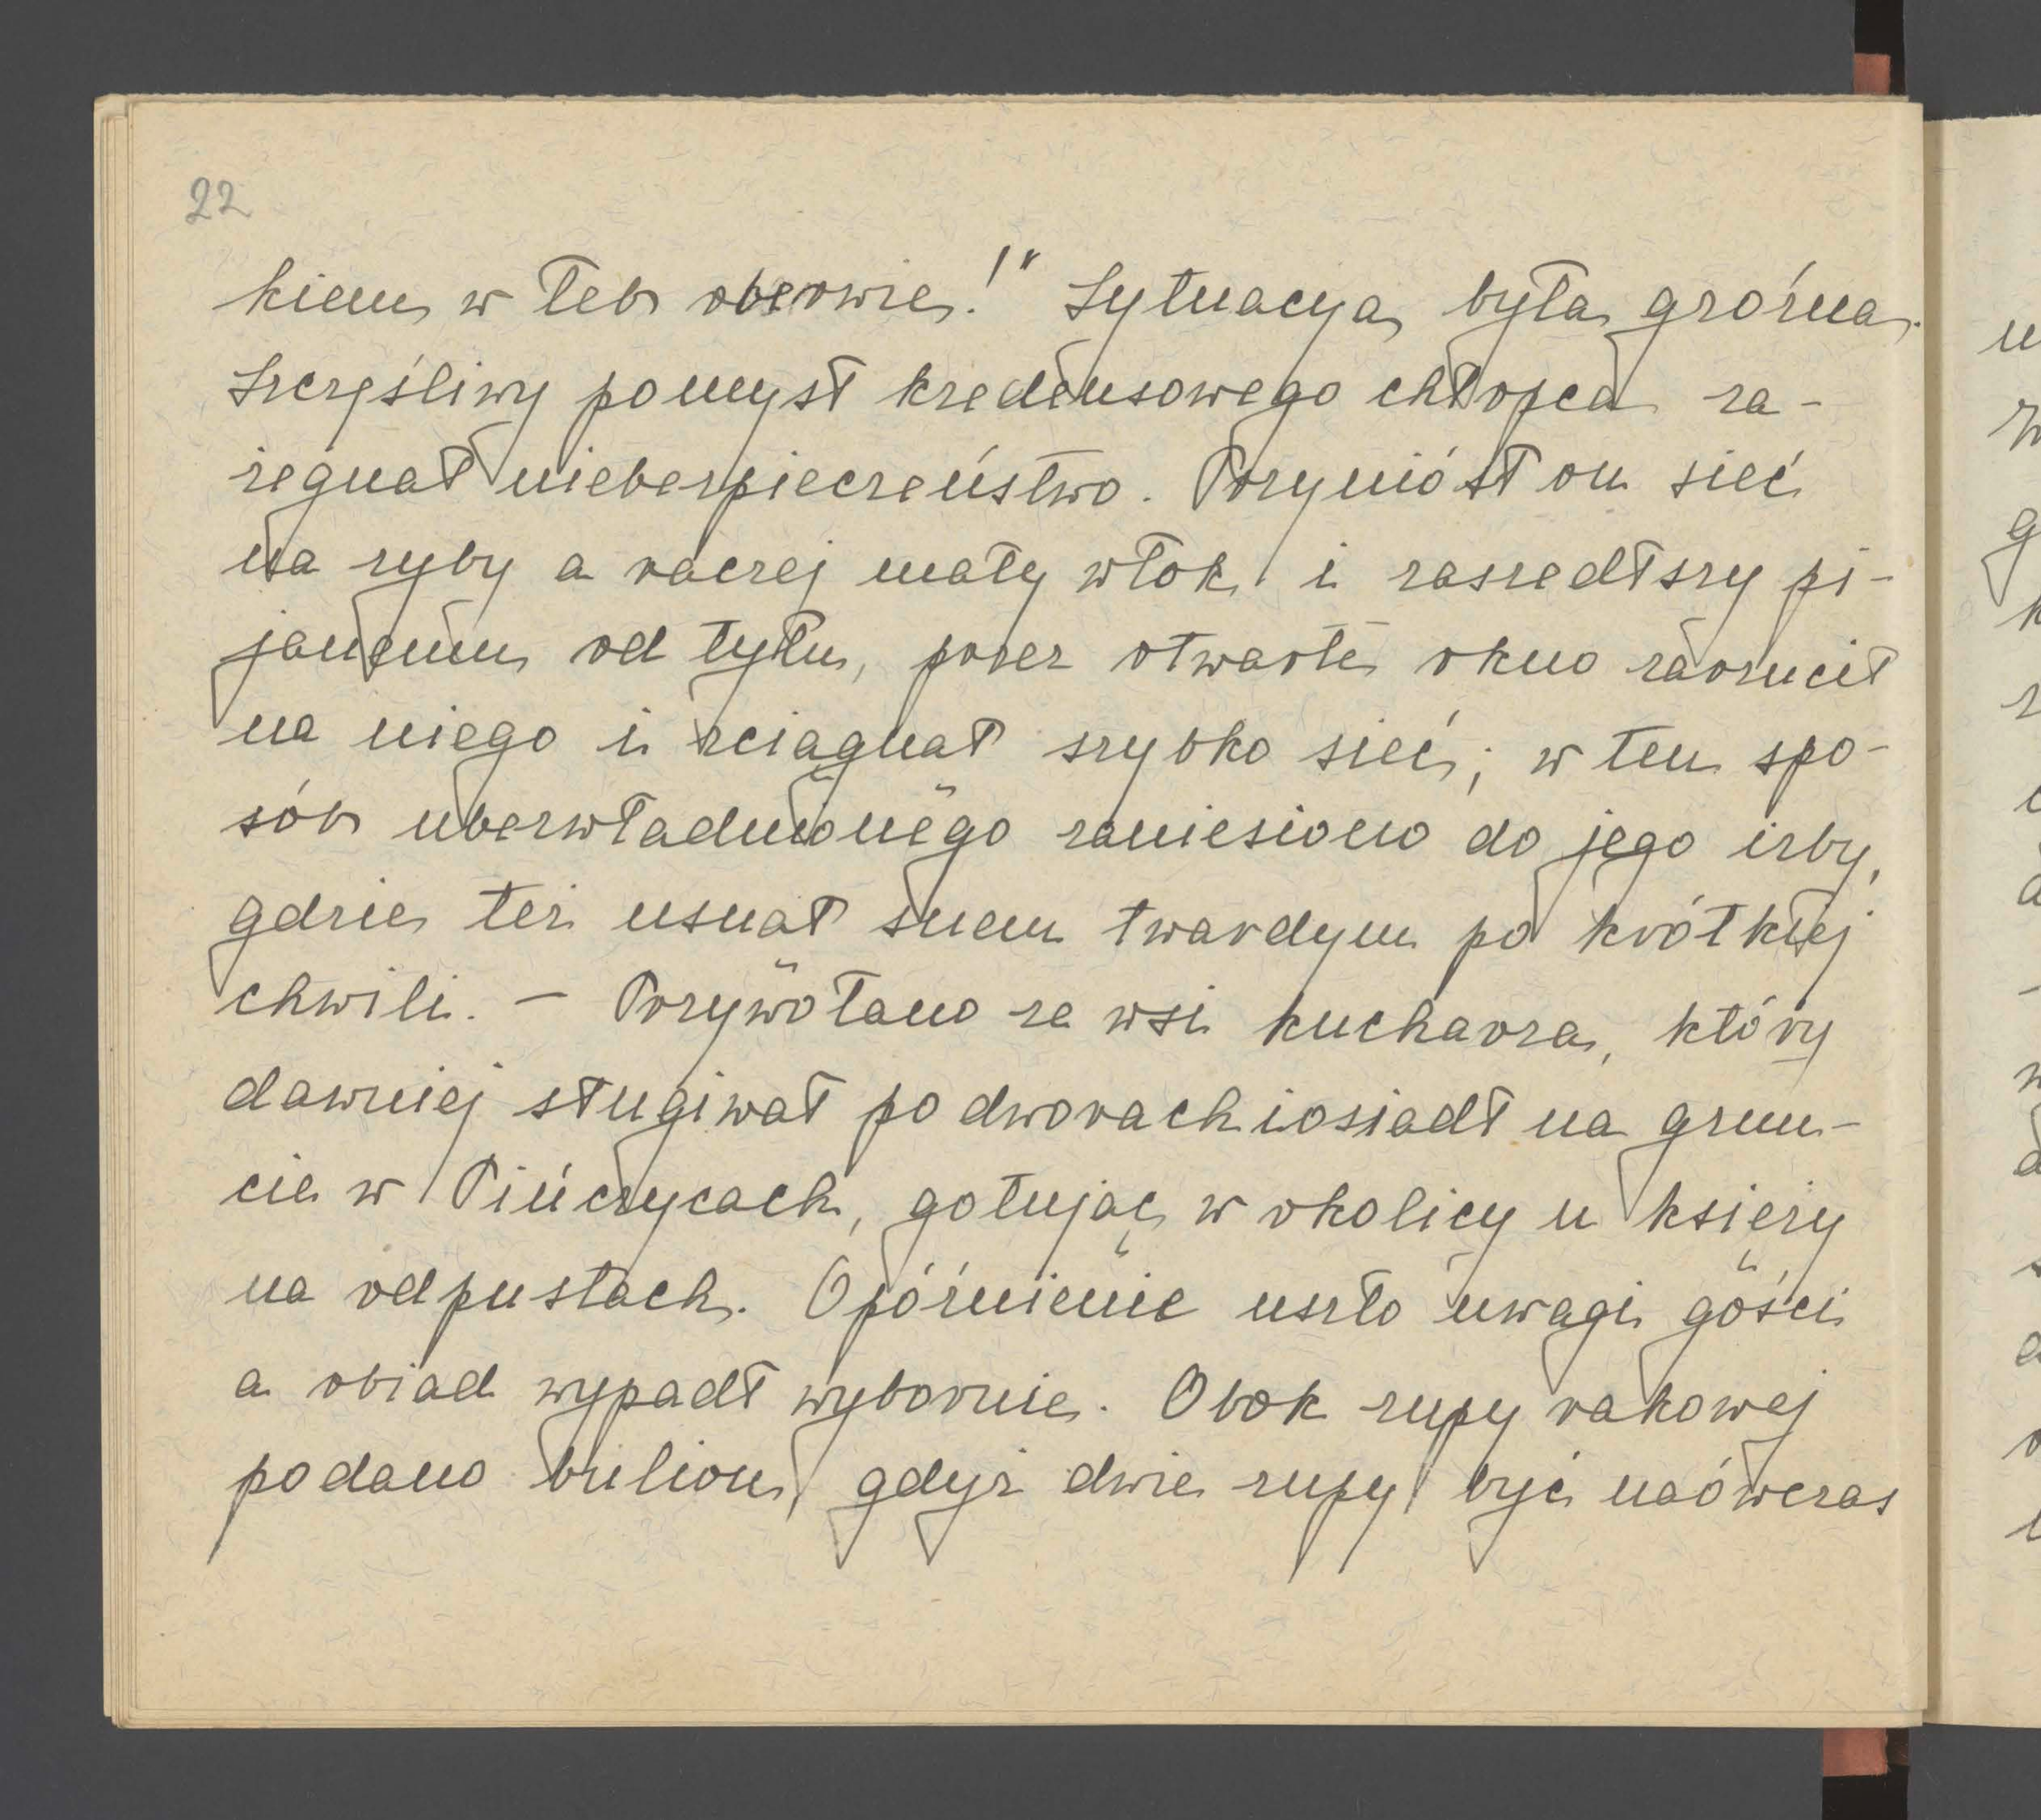 22
kiem w łeb oberwie!" Sytuacya była groźna.
Szczęśliwy pomysł kredensowego chłopca za-
żegnał niebezpieczeństwo. Przyniósł on sieć
na ryby a raczej mały włok i zaszedłszy pi-
janemu od tyłu, przez otwarte okno zarzucił
na niego i ściągnął szybko sieć; w ten spo-
sób ubezwładnionego zaniesiono do jego izby,
gdzie też usnął snem twardym po krótkiej
chwili. – Przywołano ze wsi kucharza, który
dawniej sługiwał po dworach i osiadł na grun-
cie w Pińczycach, gotując w okolicy u księży
na odpustach. Opóźnienie uszło uwagi gości
a obiad wypadł wybornie. Obok zupy rakowej
podano bulion, gdyż dwie zupy być naówczas